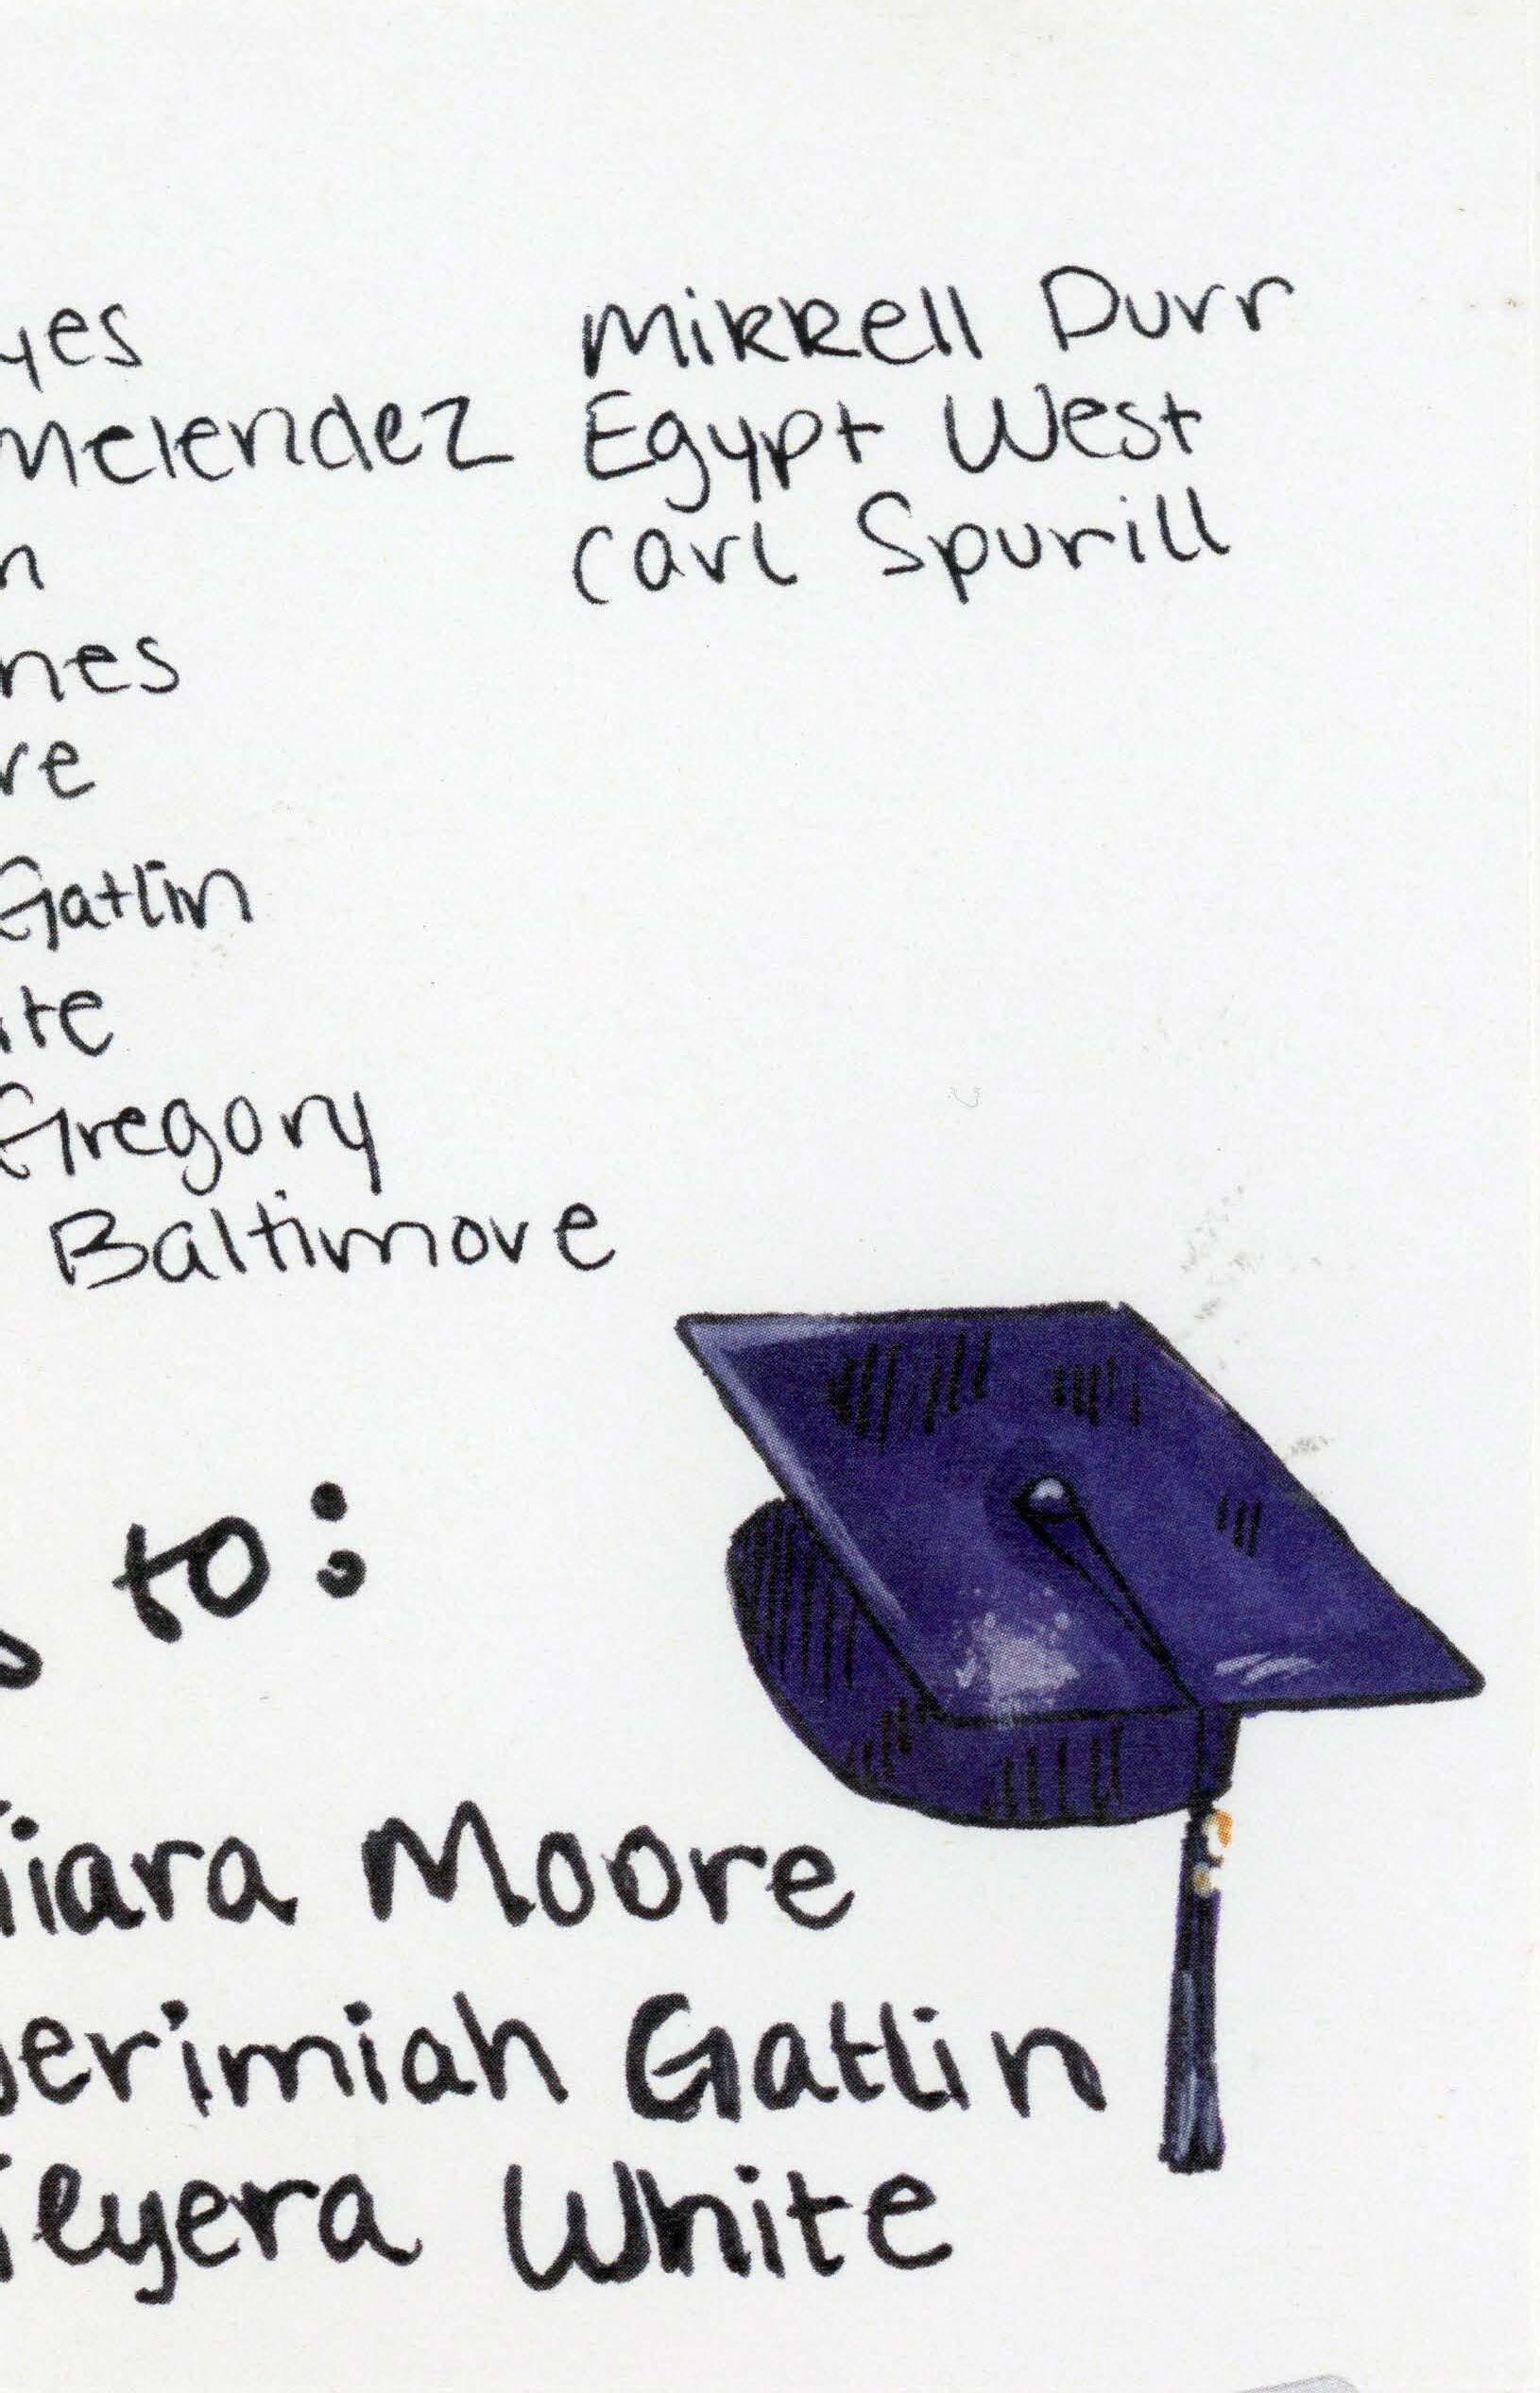 yes Mikkell Durr
Melendez Egypt West
n Carl Spurill
nes
re
Gatlin
ite
Gregory
Baltimore
to:
iara Moore
erimiah Gatlin
eyera White